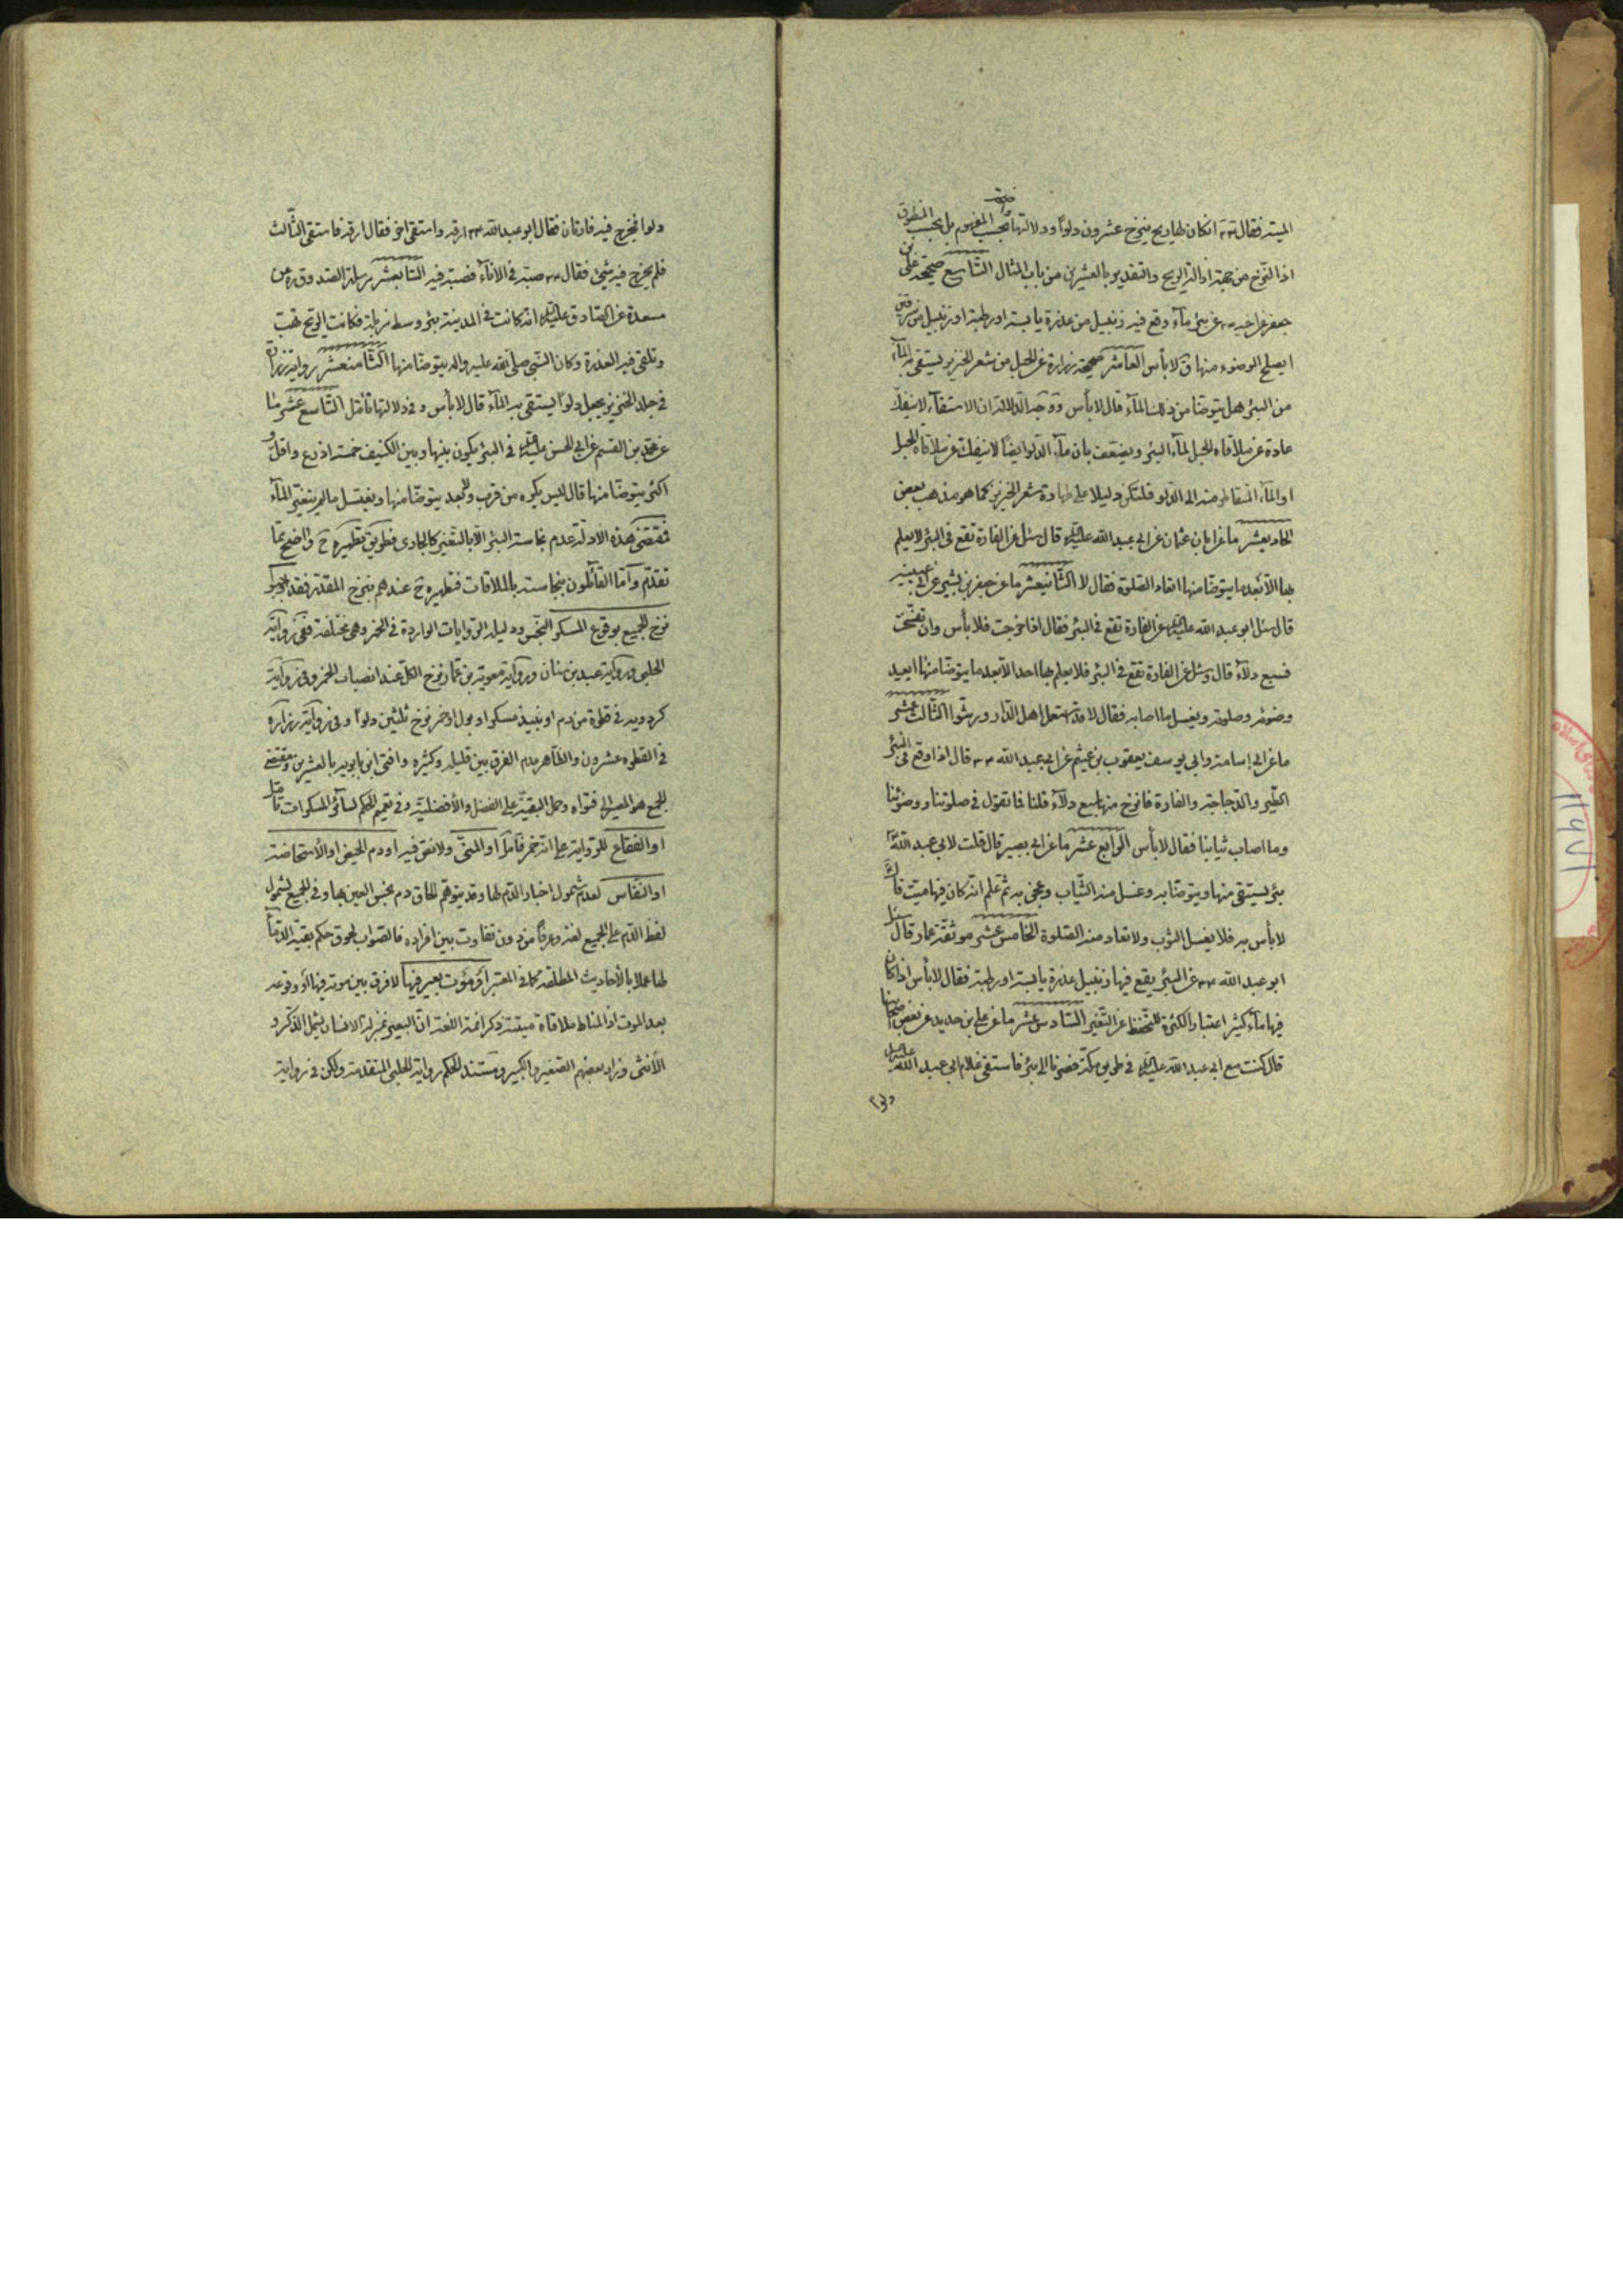 الميتة فقال ؑ ان كان لها ريح ينزح عشرون دلواً ودلالتها بحسب المفهوم بل بحسب المنطوق
اذ النزح من جهة ازالة الريح والتقدير بالعشرين من باب المثال التاسع صحيحة علي بن
جعفر عن اخيه ؑ عن بئر مآء وقع فيه زنبيل من عذرة يابسة او رطبة او زنبيل من سرقين
ايصلح الوضوء منها ق لا بأس العاشر صحيحة زرارة عن الحبل من شعر الخنزير يستقى به المآء
من البئر هل يتوضأ من ذلك المآء قال لا بأس ووجه الدلالة ان الاستقآء لا ينفك
عادة عن ملاقاة الحبل لمآء البئر ويضعف بان مآء الدلو ايضاً لا ينفك عن ملاقاة الحبل
او المآء المتقاطر منه الى الدلو فلتكن دليلا على طهارة شعر الخنزير كما هو مذهب بعض
الحاديعشر ما عن ابان بن عثمان عن ابي عبد الله عليه السلام قال سئل عن الفارة تقع في البئر لا يعلم
بها الا بعد ما يتوضأ منها اتعاد الصلوة فقال لا الثانيعشر ما عن جعفر بن بشير عن ابي عيينة
قال سئل ابو عبد الله عليه السلام عن الفارة تقع في البئر فقال اذا خرجت فلا بأس وان تفسخت
فسبع دلآء قال وسئل عن الفارة تقع في البئر فلا يعلم بها احد الا بعد ما يتوضأ منها ايعيد
وضوئه وصلوته ويغسل ما اصابه فقال لا قد استعمل اهل الدار ورشوا الثالث عشر
ما عن ابي اسامة وابي يوسف يعقوب بن عيثم عن ابي عبد الله ؑ قال اذا وقع في البئر
الطير والدجاجة والفارة فانزح منها سبع دلآء قلنا فما تقول في صلوتنا ووضوئنا
وما اصاب ثيابنا فقال لا بأس الرابع عشر ما عن ابي بصير قال قلت لابي عبد الله ؑ
بئر يستقى منها ويتوضأ به وغسل منه الثياب وعجن به ثم علم انه كان فيها ميت قال
لا بأس به فلا يغسل الثوب ولا تعاد منه الصلوة الخامس عشر موثقة عمار قال سئل
ابو عبد الله ؑ عن البئر يقع فيها زنبيل عذرة يابسة او رطبة فقال لا بأس اذا كان
فيها مآء كثير اعتبار الكثرة للتحفظ عن التغير السادس عشر ما عن علي بن حديد عن بعض اصحابنا
قال كنت مع ابي عبد الله عليه السلام في طريق مكة فصرنا الى بئر فاستقى غلام ابي عبد الله عليه السلام
دلوا
دلوا فخرج فيه فارتان فقال ابو عبد الله ؑ ارقه واستقى اخر فقال ارقه فاستقى الثالث
فلم يخرج فيه شيء فقال ؑ صبه في الانآء فصبه فيه السابعشر مرسلة الصدوق ره عن
مسعدة عن الصادق عليه السلام انه كانت في المدينة بئر وسط مزبلة فكانت الريح تهب
وتلقي فيه العذرة وكان النبي صلى الله عليه واله يتوضأ منها الثامنعشر رواية زرارة
في جلد الخنزير يجعل دلوا يستقى به المآء قال لا بأس وفي دلالتها تأمل التاسع عشر ما
عن محمد بن القسم عن ابي الحسن عليه السلام في البئر يكون بينها وبين الكنيف خمسة اذرع واقل و
اكثر يتوضأ منها قال ليس يكره من قرب ولا بعد يتوضأ منها ويغتسل ما لم يتغير المآء
فمقتضى هذه الادلة عدم نجاسة البئر الا بالتغير كالجاري فطريق تطهيره ح واضح مما
تقدم واما القائلون بنجاسته بالملاقات فتطهيره ح عندهم بنزح المقدر فقد اوجبوا
نزح الجميع بوقوع المسكر النجس ودليله الروايات الواردة في الخمر وهي مختلفة ففي رواية
الحلبي ورواية عبد بن سنان ورواية معوية بن عمار نزح الكل عند انصباب الخمر وفي رواية
كردويه في قطرة من دم او نبيذ مسكر او بول او خمر نزح ثلثين دلوا وفي رواية زرارة
في القطرة عشرون والظاهر عدم الفرق بين قليله وكثيره وافتى ابن بابويه بالعشرين ومقتضى
الجمع هو المصير الى فتواه وحمل البقية على الفضل والأفضلية وفي تعميم الحكم لسائر المسكرات تأمل
او الفقاع للرواية على انه خمر فأمل او المني ولا نص فيه او دم الحيض او الأستحاضة
او النفاس لعدم شمول اخبار الدم لها وقد يتوهم الحاق دم نجس العين بها وفي الجميع لشمول
لفظ الدم على الجميع لغة وعرفاً من دون تفاوت بين افراده فالصواب لحوق حكم بقية الدمآء
لها عملا بالأحاديث المطلقة كما في المعتبر او موت بعير فيها لا فرق بين موته فيها او وقوعه
بعد الموت اذ المناط ملاقاة ميتته ذكر ائمة اللغة ان البعير بمنزلة الانسان يشمل الذكر و
الأنثى وزاد بعضهم الصغير والكبير ومستند الحكم رواية الحلبي المتقدمة ولكن في رواية